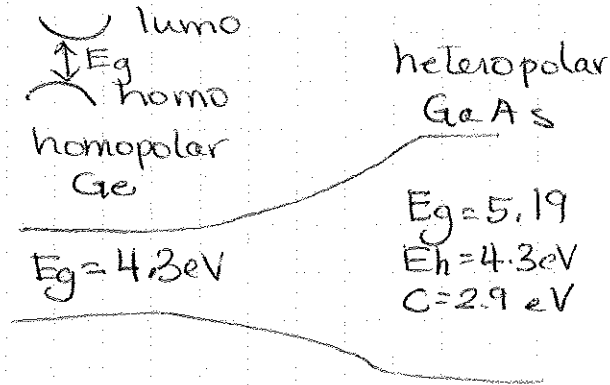 lumo
Eg
homo
homopolar
Ge
Eg=4.3eV
heteropolar
GaAs
Eg=5.19
Eh=4.3eV
C=2.9 eV